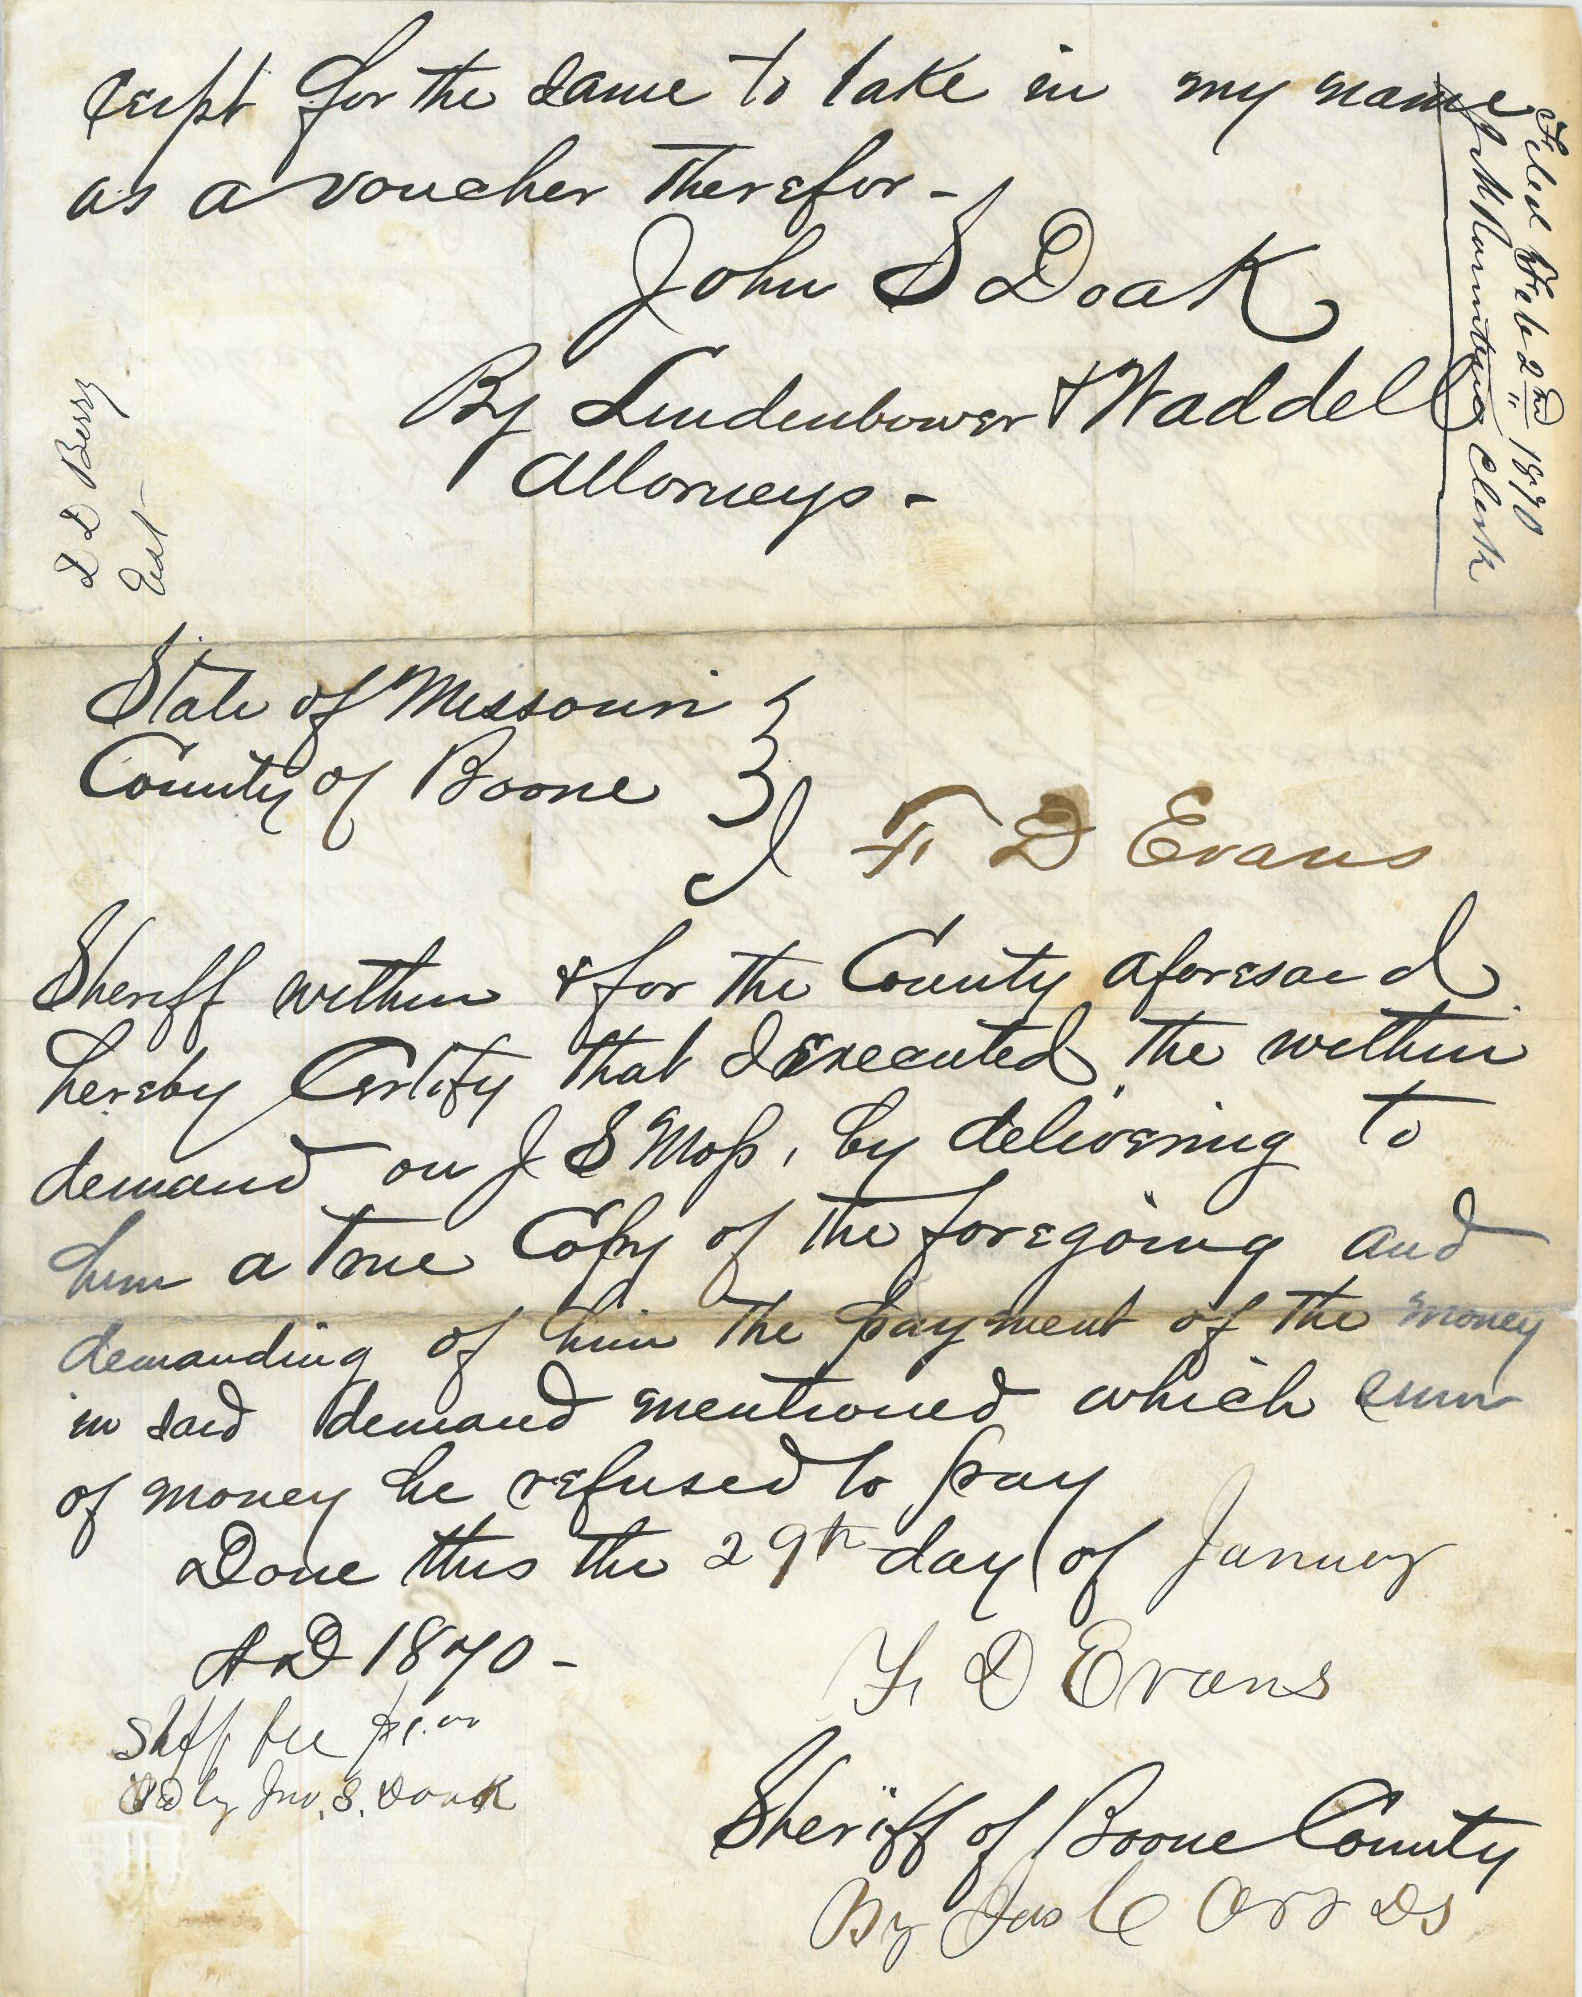 ceipt for the same to take in my name
as a voucher therefor -
John S Doak
By Lindenbower & Waddell
Attorneys -
Filed Feb 2nd 1870
Clerk
L D Berry
State of Missouri }
County of Boone }
I F. D Evans
Sheriff within & for the County aforesaid
hereby Certify that I executed the within
demand on J S Moss, by delivering to
him a true Copy of the foregoing and
demanding of him the payment of the money
in said demand mentioned which sum
of money he refused to pay
Done this the 29th day of January
AD 1870 -
F. D Evans
Shff fee $1.00
Pd by Jno. S. Doak
Sheriff of Boone County
By Jas C Orr DS